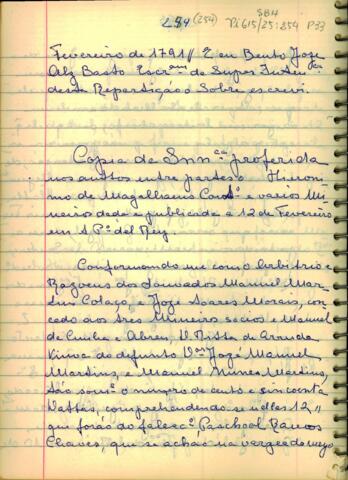 254 (254)
SBH
Pi 615/25:254 P33
Fevereiro de 1791 // E eu Bento Joze
Alz Basto Escr.am da Super Inten.cia
desta Repartição o Sobre escrevi.
Copia da Snn.ca proferida
nos autos entre partes o Hieroni
mo de Magalhains Card.o e varios Mi
neiros dada e publicada a 12 de Fevereiro
em S. P.o del Rey.
Conformando me com o Arbitrio e
Razoens dos Louvados Manuel Mar-
tins Colaço, e Joze Soares Morais, con
cedo aos tres Mineiros socios e Manuel
da Cunha e Abreu, D. Ritta de Arruda
Viuva do defunto D.or Jozé Manuel
Martins, e Manuel Nunes Martins,
tão som.e o numero de cento e sincoenta
Dattas, comprehendendo se nellas 12,,
que forão do falesc.o Paschoal Ramos
Chaves, que se achão na vargem do meyo